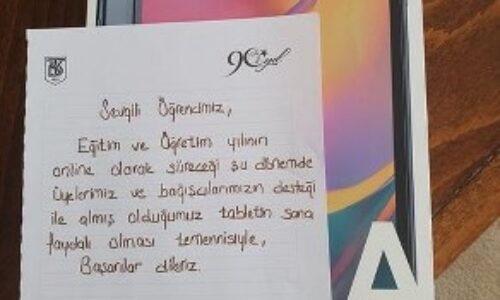 90. yıl
Sevgili Öğrencimiz,
Eğitim ve Öğretim yılının
online olarak süreceği şu dönemde
üyelerimiz ve bağışçılarımızın desteği
ile almış olduğumuz tabletin sana
faydalı olması temennisiyle,
Başarılar dileriz.
A